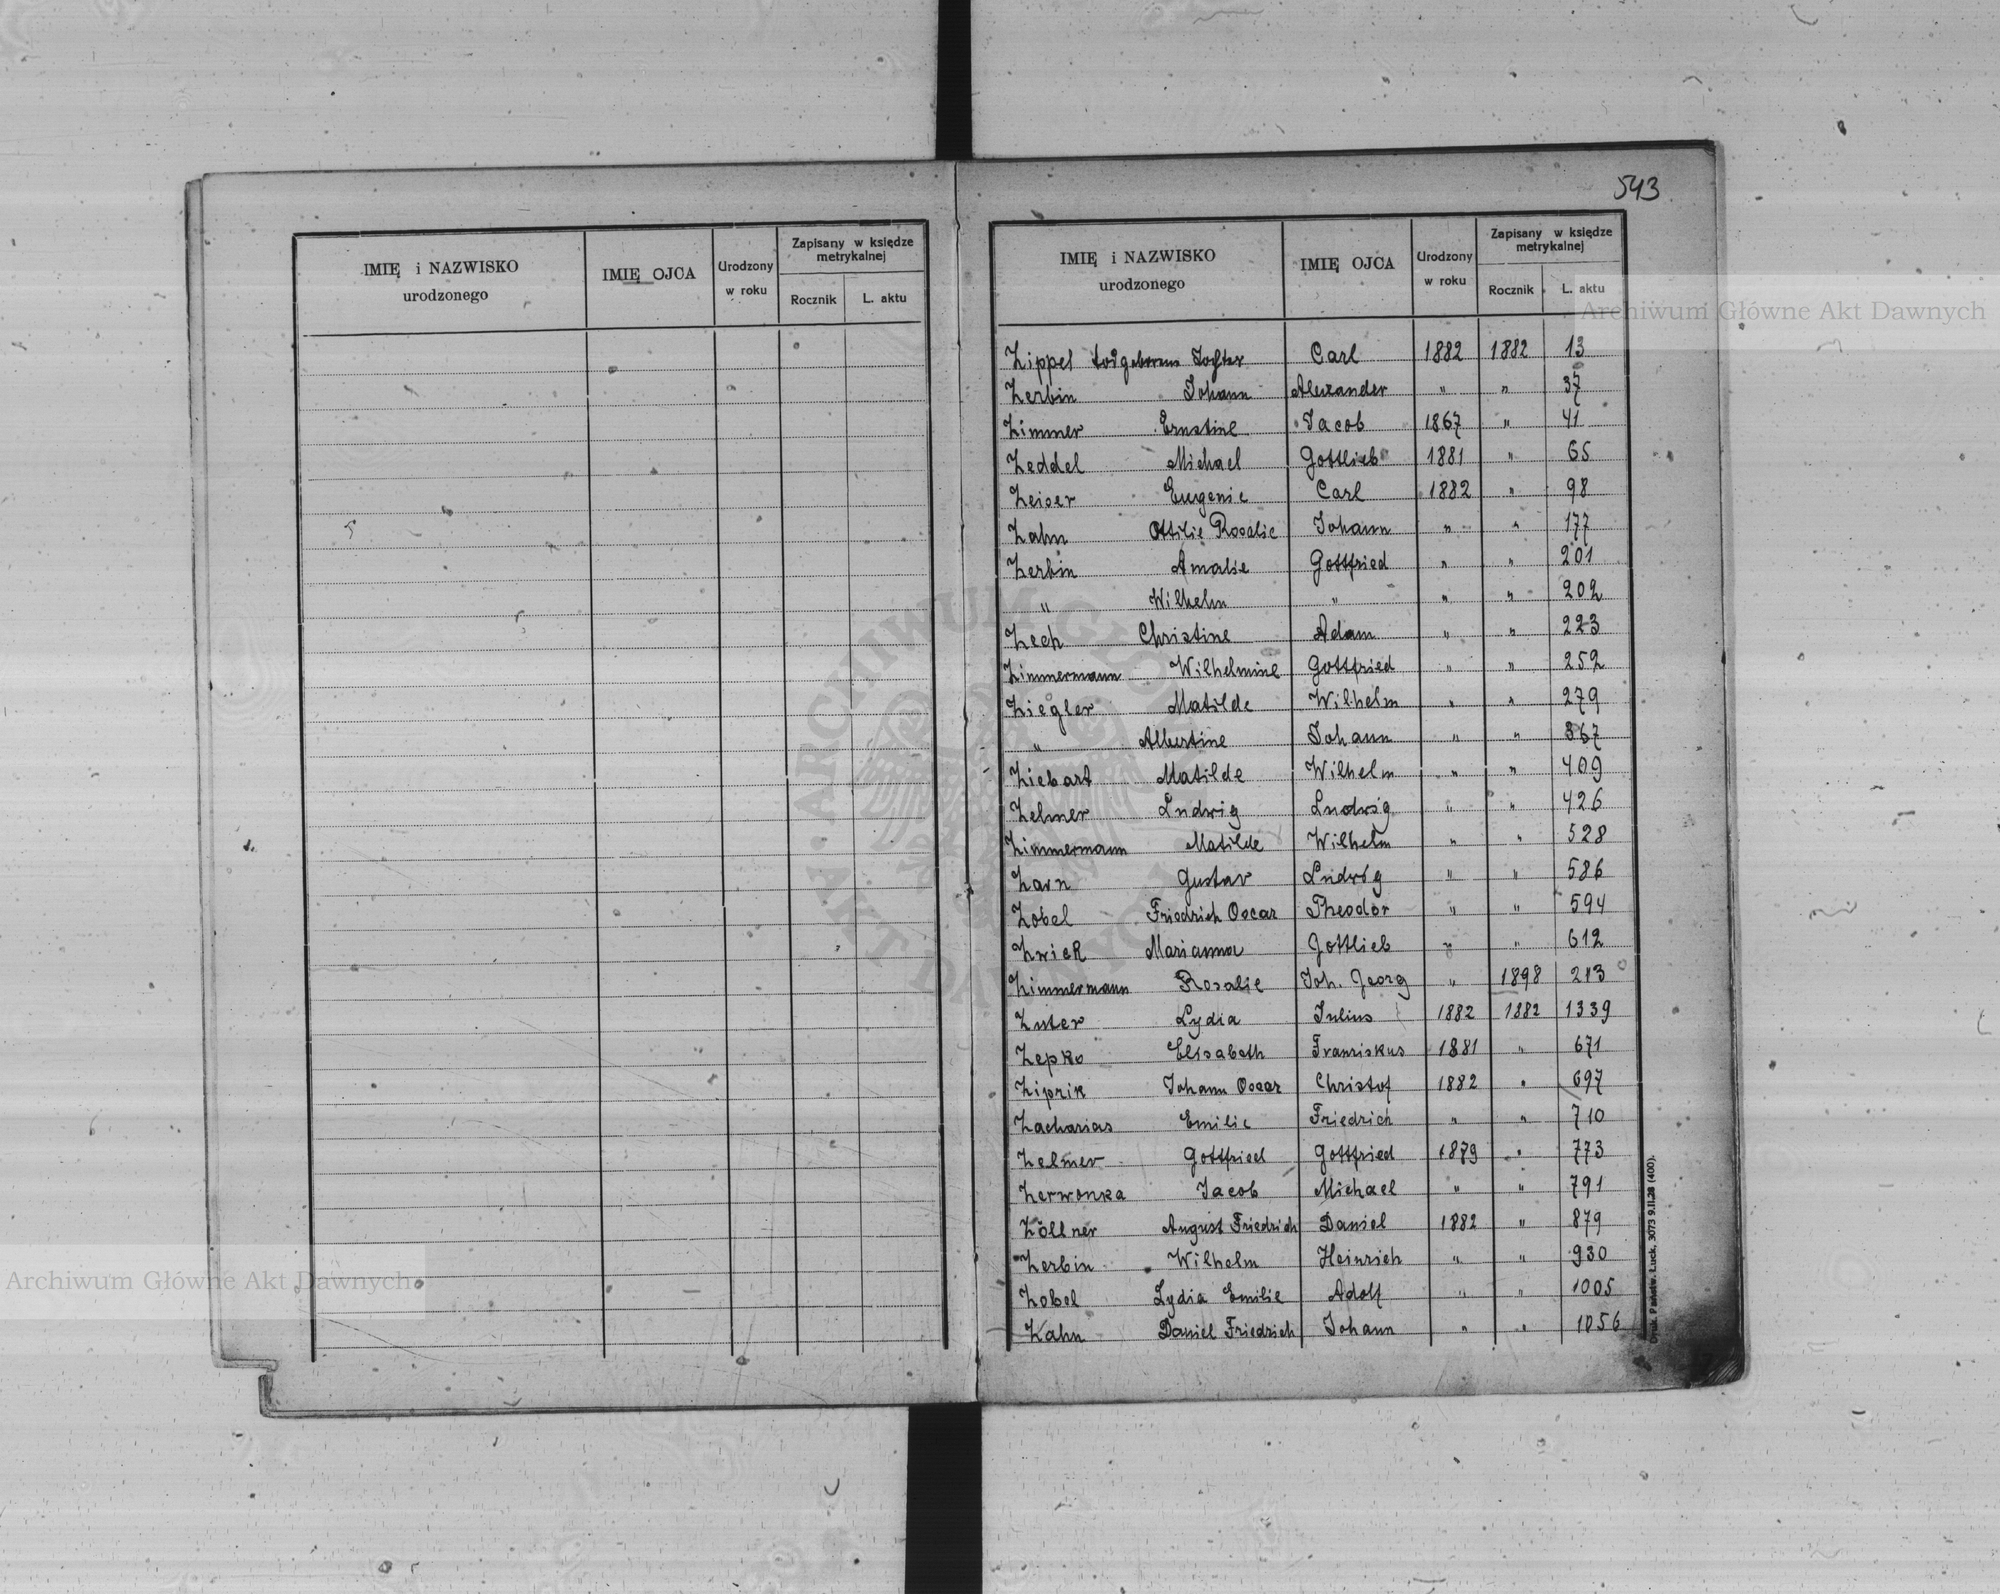 543
IMIĘ i NAZWISKO urodzonego IMIĘ OJCA Urodzony w roku Zapisany w księdze metrykalnej Rocznik L. aktu
IMIĘ i NAZWISKO urodzonego IMIĘ OJCA Urodzony w roku Zapisany w księdze metrykalnej Rocznik L. aktu
Zippel todgeborene Tochter Carl 1882 1882 13
Zerbin Johann Alexander " " 37
Zimmer Ernstine Jacob 1867 " 41
Zeddel Michael Gottlieb 1881 " 65
Zeiser Eugenie Carl 1882 " 98
Zahn Ottilie Rosalie Johann " " 177
Zerbin Amalie Gottfried " " 201
" Wilhelm " " " 202
Zech Christine Adam " " 223
Zimmermann Wilhelmine Gottfried " " 252
Ziegler Matilde Wilhelm " " 279
" Albertine Johann " " 367
Ziebart Matilde Wilhelm " " 409
Zelmer Ludwig Ludwig " " 426
Zimmermann Matilde Wilhelm " " 528
Zarn Gustav Ludwig " " 586
Zobel Friedrich Oscar Theodor " " 594
Zwick Marianna Gottlieb " " 612
Zimmermann Rosalie Joh. Georg " 1898 213
Zuter Lydia Julius 1882 1882 1339
Zepko Elisabeth Franziskus 1881 " 671
Ziprik Johann Oscar Christof 1882 " 697
Zacharias Emilie Friedrich " " 710
Zelmer Gottfried Gottfried 1879 " 773
Zerwonka Jacob Michael " " 791
Zöllner August Friedrich Daniel 1882 " 879
Zerbin Wilhelm Heinrich " " 930
Zobel Lydia Emilie Adolf " " 1005
Zahn Daniel Friedrich Johann " " 1056
Druk. Państw. Łuck. 3073 9.II.28 (400).
Archiwum Główne Akt Dawnych
Archiwum Główne Akt Dawnych
ARCHIWUM GŁÓWNE AKT DAWNYCH